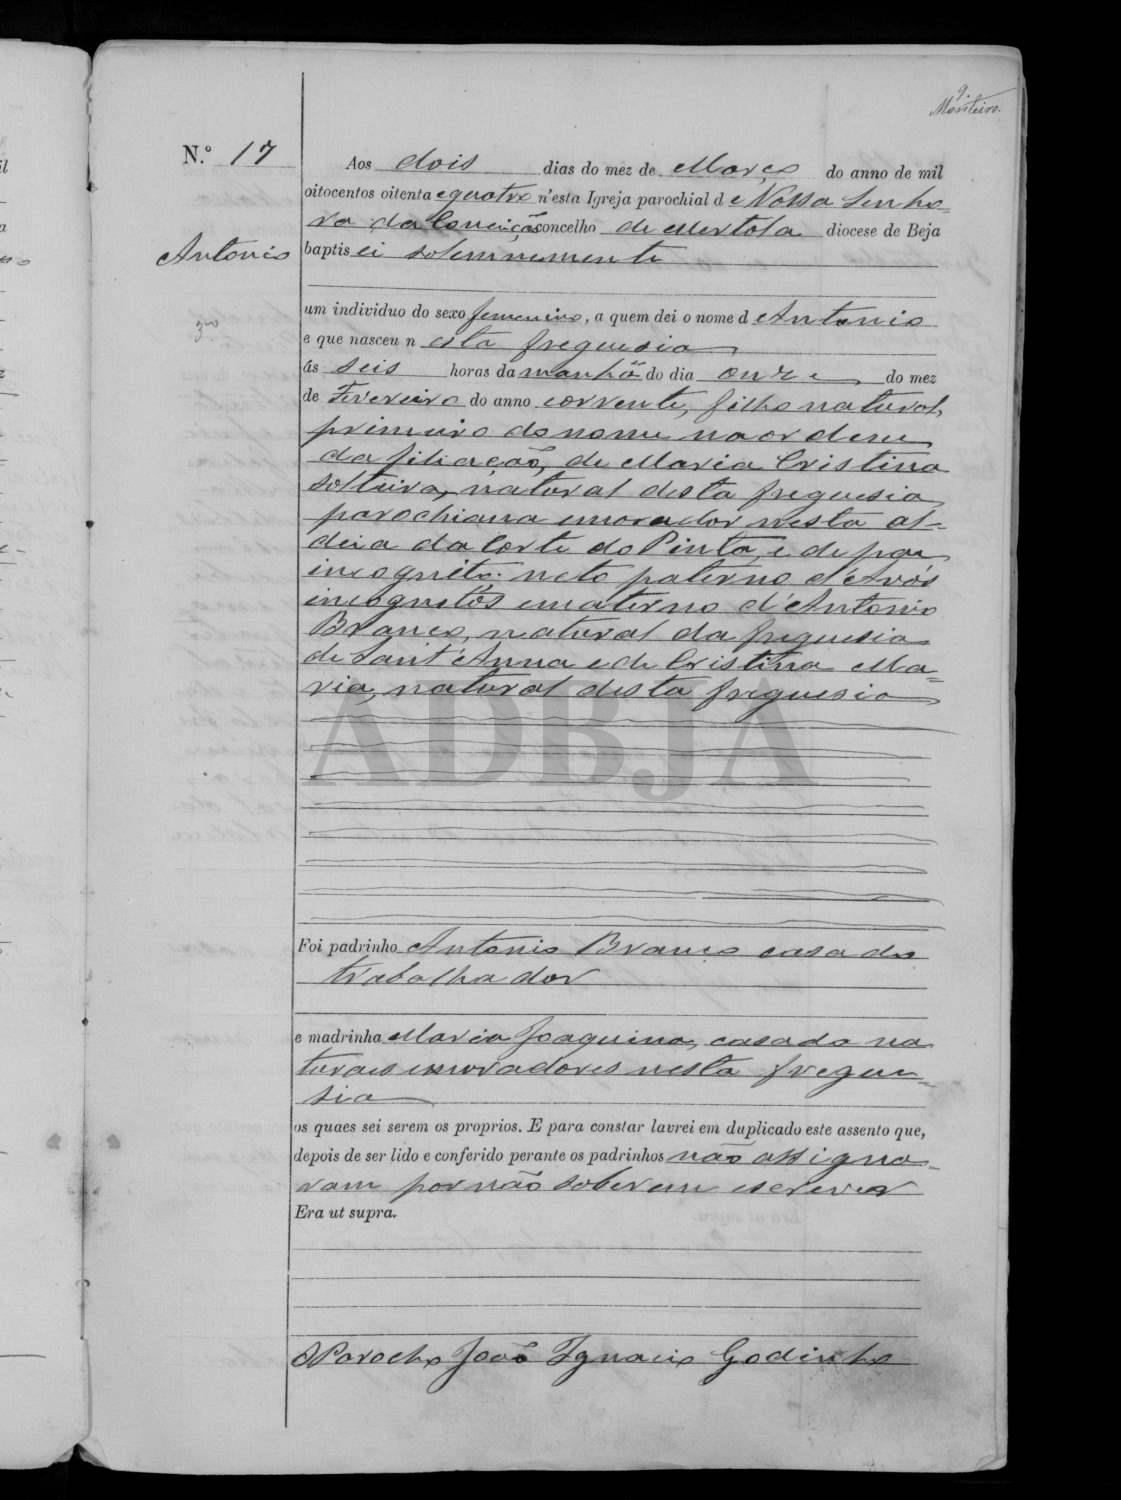 9.
Monteiro.
N.º 17
Aos dois dias do mez de Março do anno de mil
oitocentos oitenta e quatro n'esta Igreja parochial d e Nossa Senho=
ra da Conceição concelho de Mertola diocese de Beja
Antonio
baptis ei solemnemente
um individuo do sexo femenino, a quem dei o nome d Antonio
e que nasceu n esta freguesia
ás seis horas da manhã do dia onze do mez
de Fevereiro do anno corrente, filho natural,
primeiro do nome na ordem
da filiação, de Maria Cristina
solteira, natural desta freguesia
parochiana e morador nesta al=
deia da Corte do Pinto, e de pae
incognito: neto paterno d'Avós
incognitos e materno d'Antonio
Branco, natural da freguesia
de Sant'Anna e de Cristina Ma=
ria, natural desta freguesia
ADBJA
Foi padrinho Antonio Branco casado
trabalhador
e madrinha Maria Joaquina, casada na
turaes e moradores nesta fregue=
sia
os quaes sei serem os proprios. E para constar lavrei em duplicado este assento que,
depois de ser lido e conferido perante os padrinhos não assigna=
ram por não saberem escrever
Era ut supra.
O Parocho João Ignacio Godinho